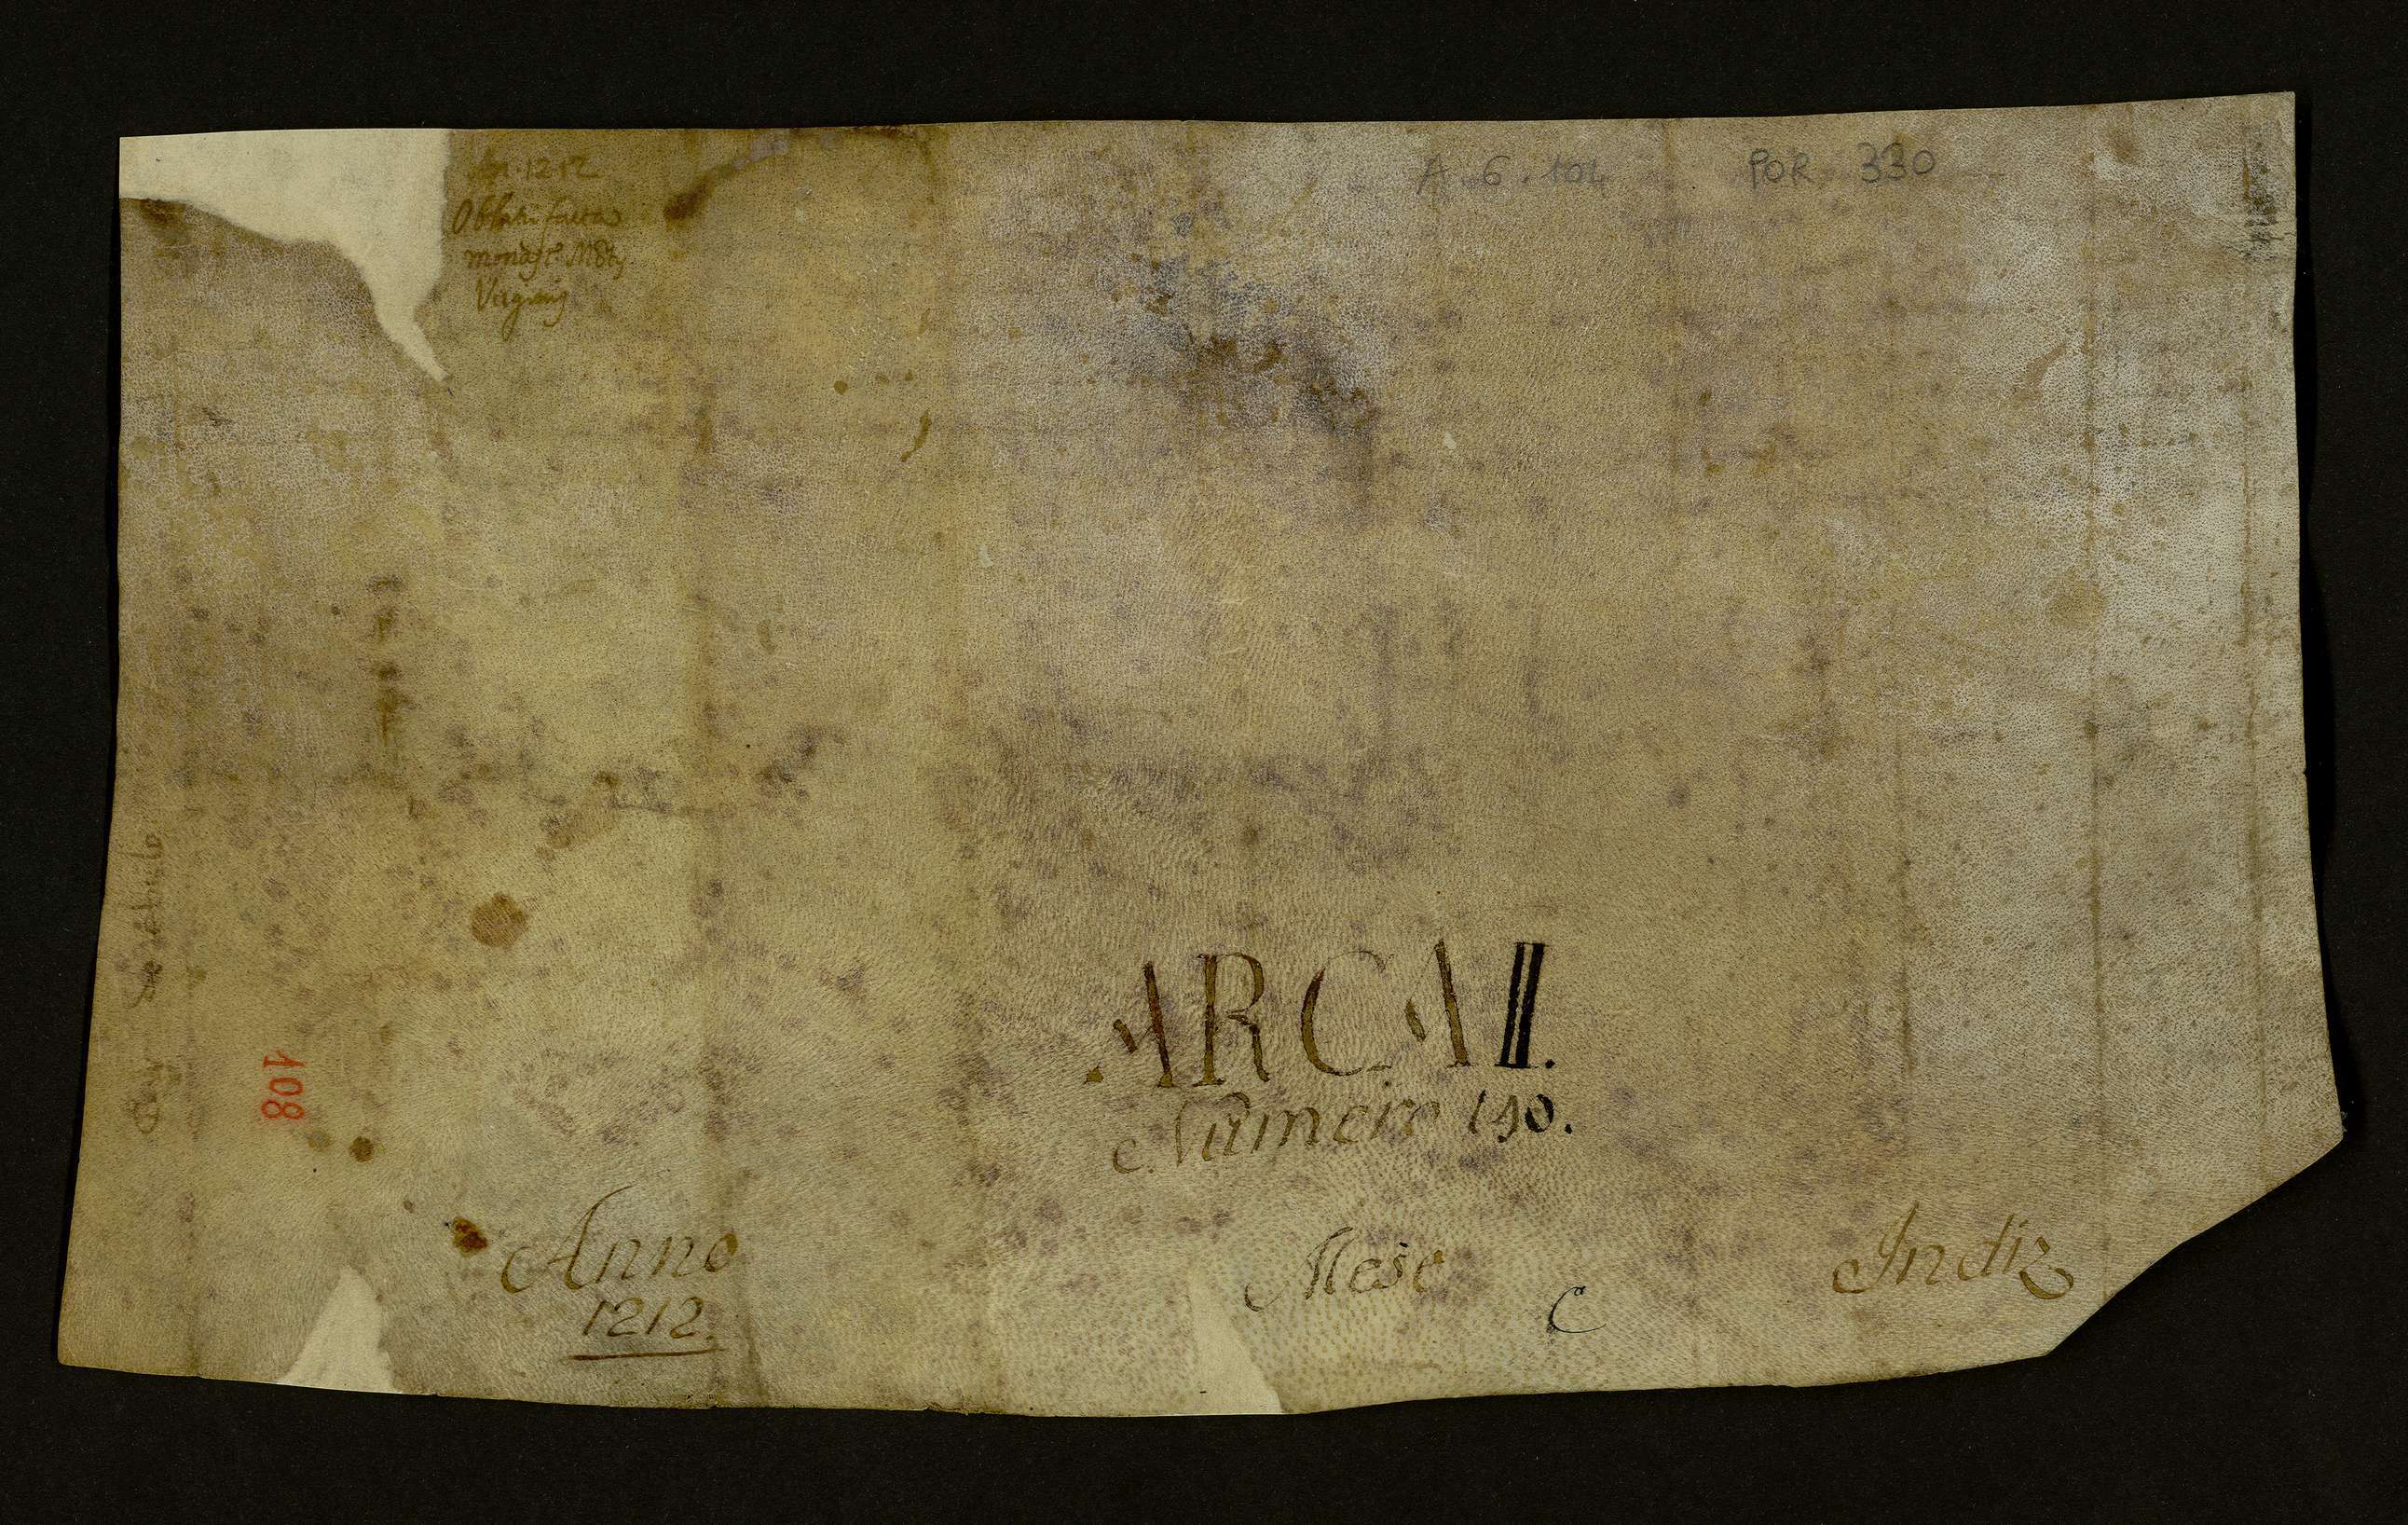 An. 1212
Oblatio facta
monast.
Virginis
A. 6. 104
POR 330
108
ARCA II.
Numero 190.
Anno
1212.
Mese
C
Indiz